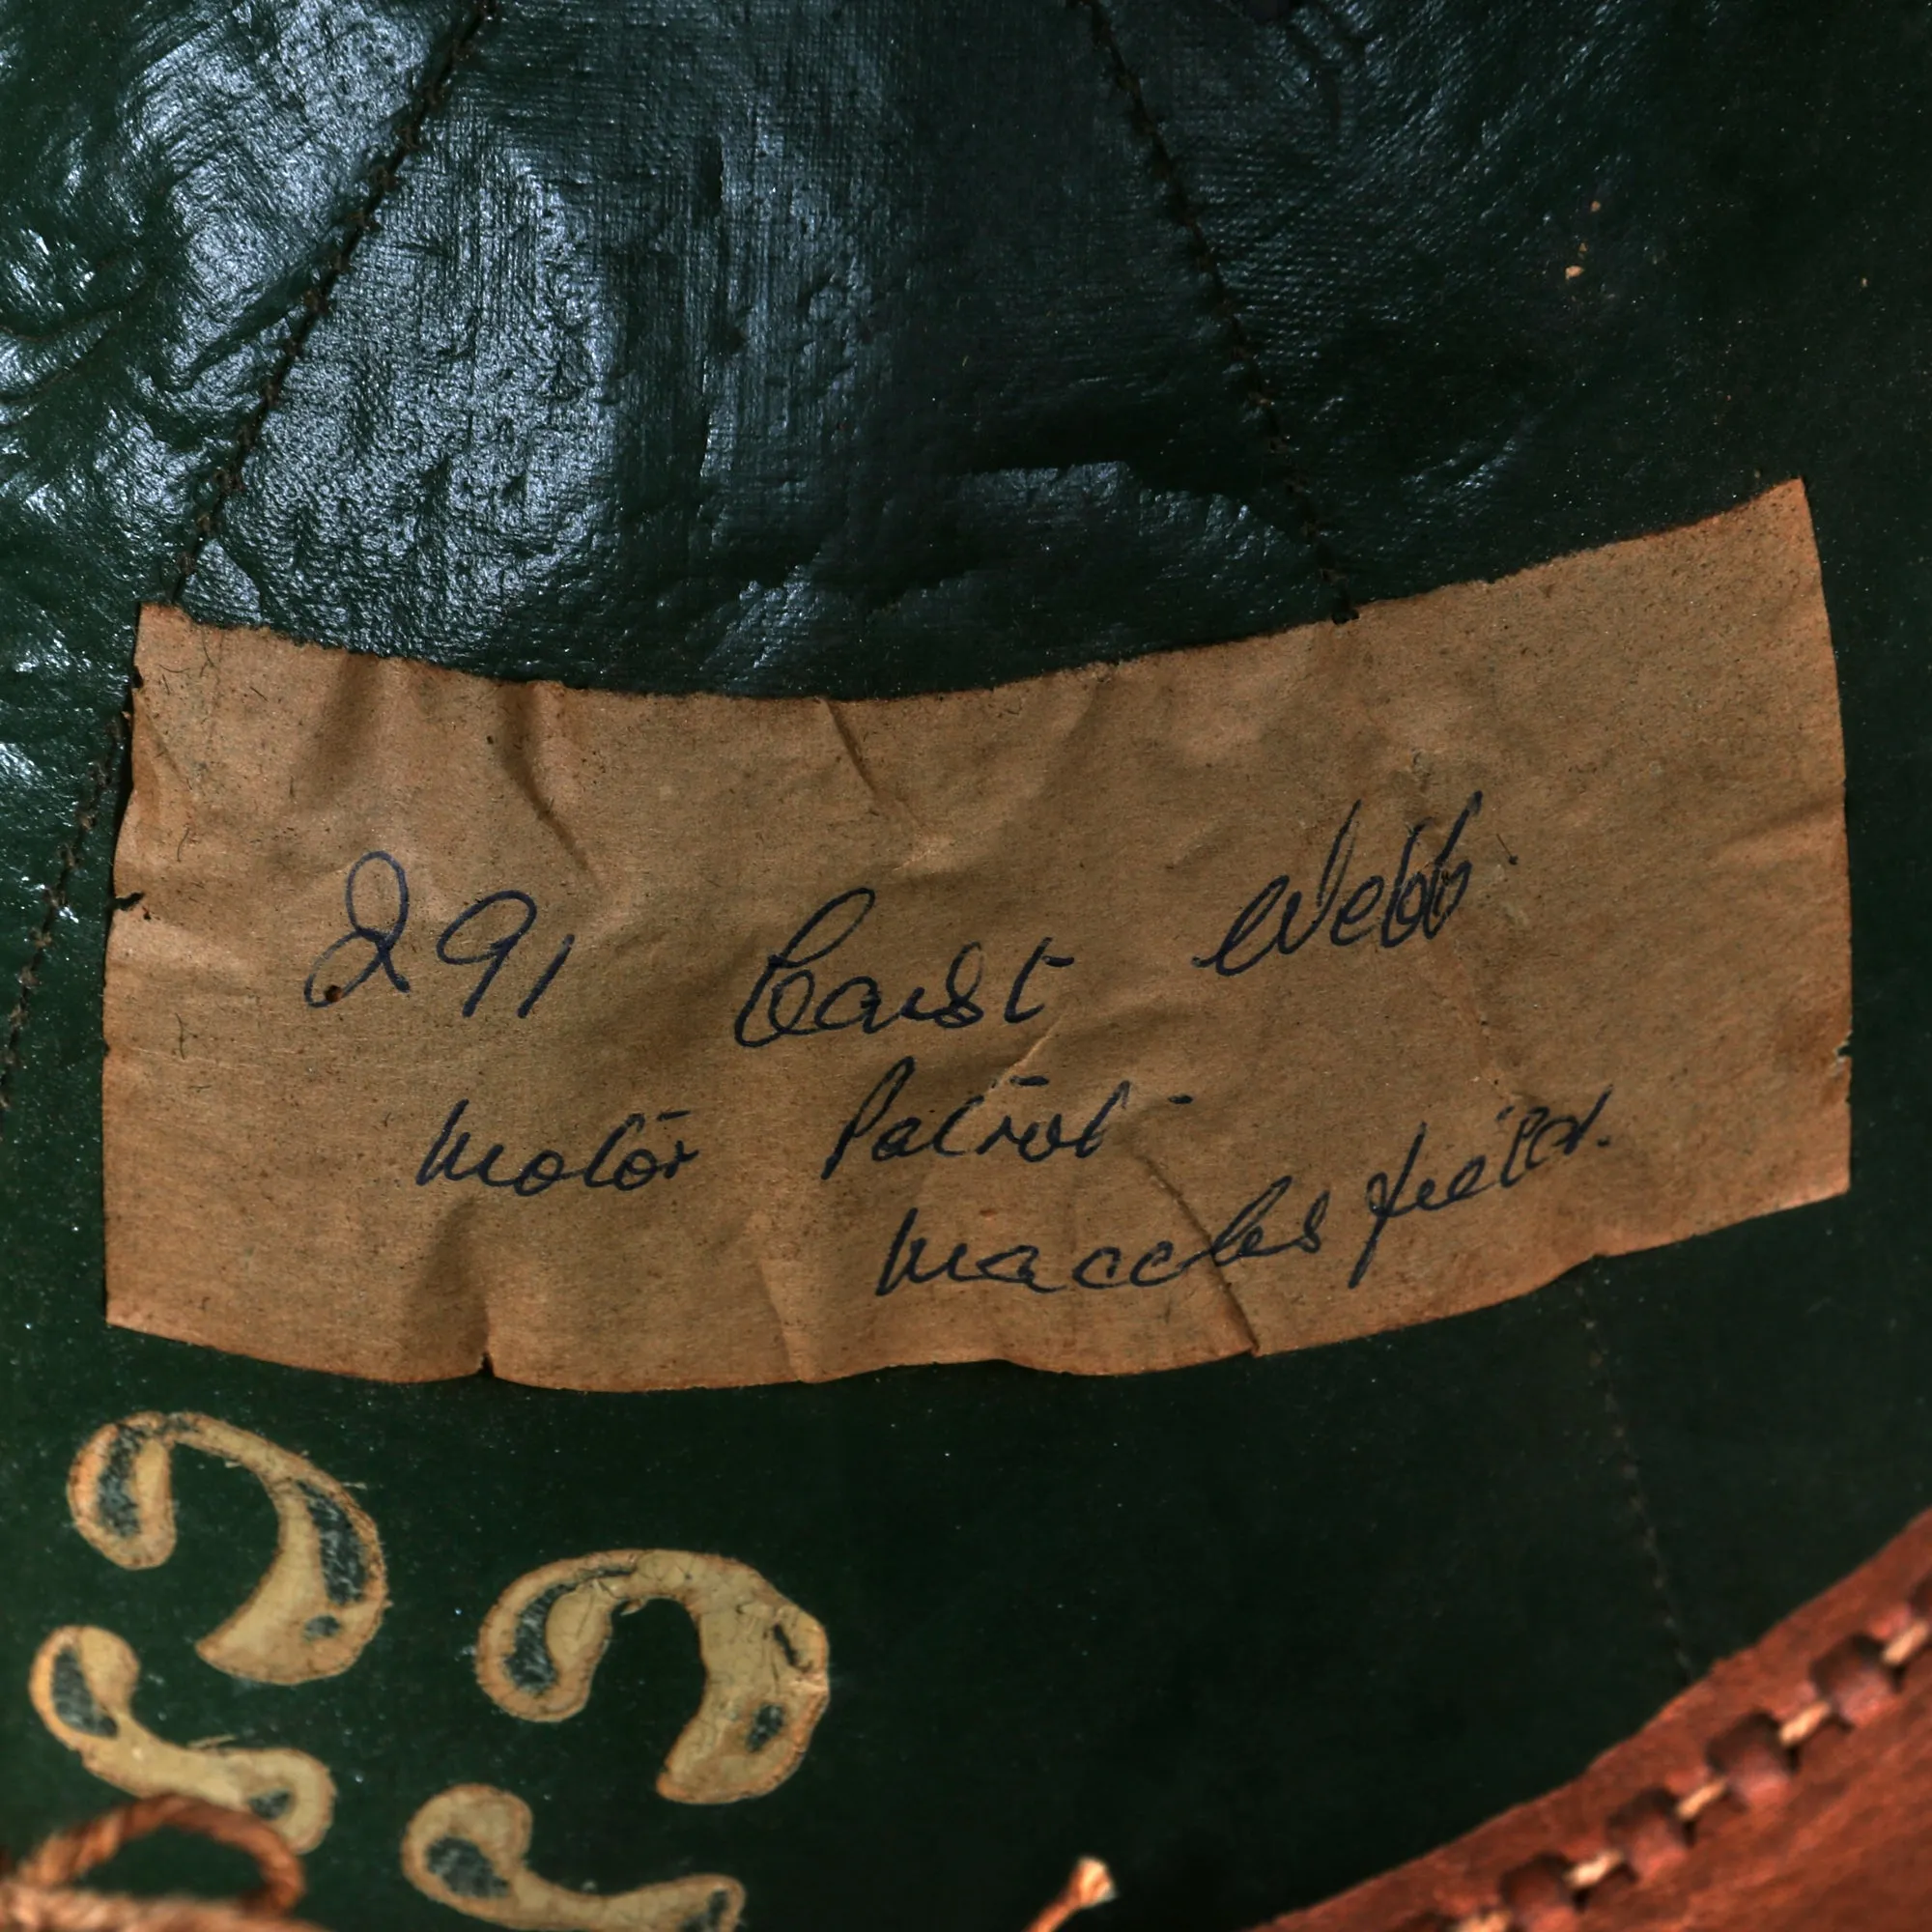 291 Const Webb.
Motor Patrol
Macclesfield.